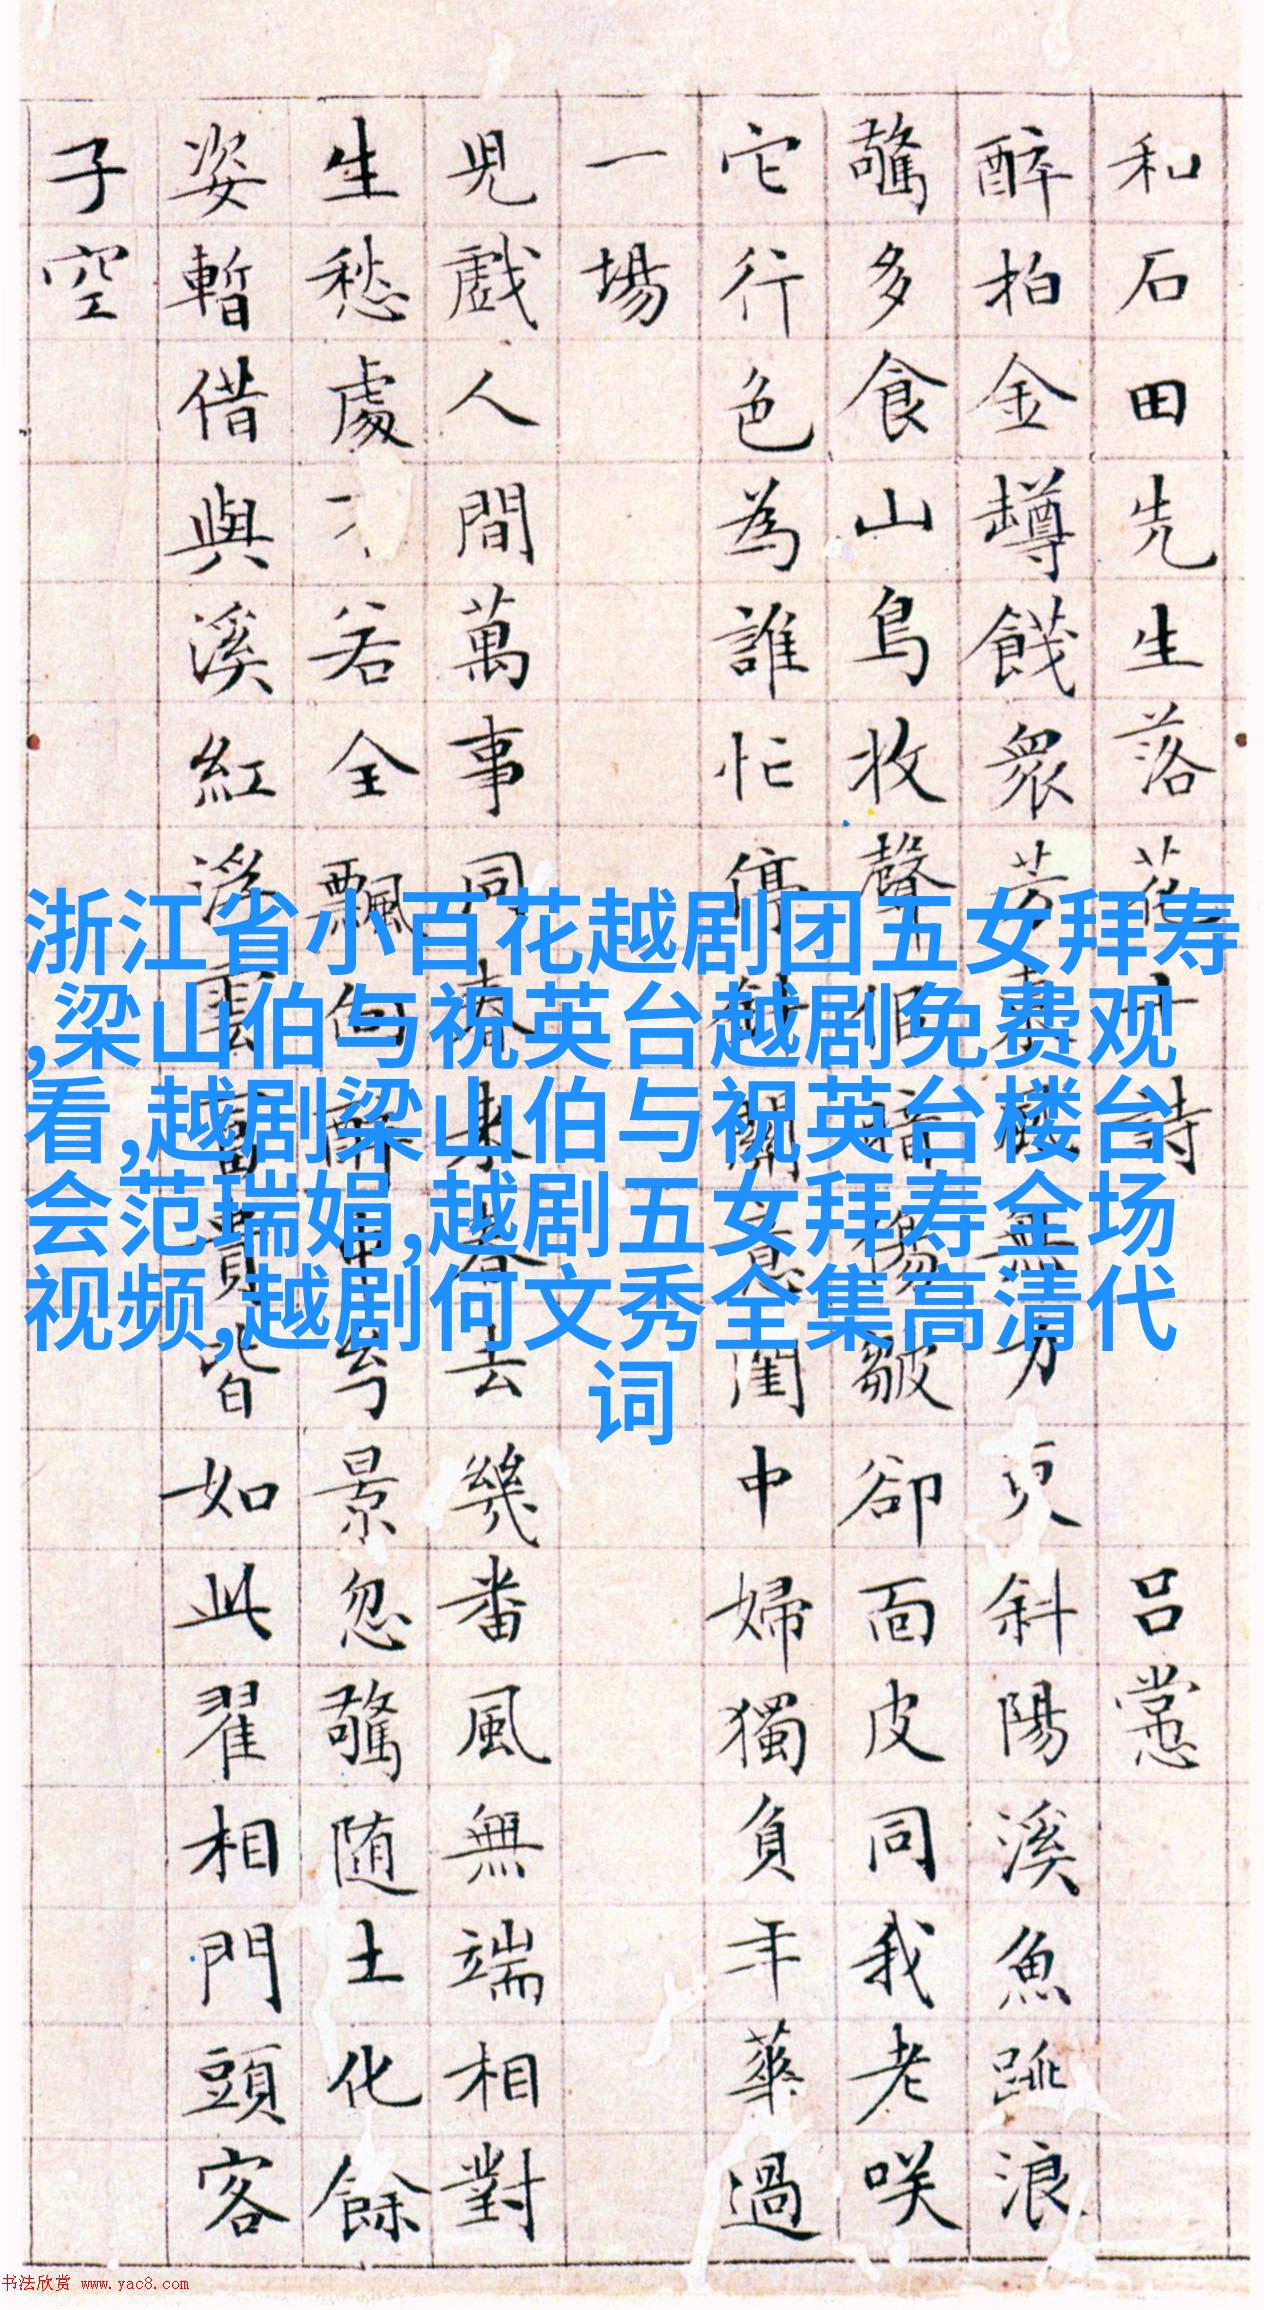 和石田先生落花十詩 吕
醉拍金餞衆芳東無力更斜陽溪魚跳浪
驚多食山鳥收聲皺卻面皮同我老咲
它行色為誰忙停針關意閨中婦獨負年華過
一場
兒戲人間萬事同春來春去幾番風無端相對
生愁處不若全飄向醉中景忽驚随土化餘
姿暫借與溪紅浮雲富貴皆如此翟相門頭客
子空
浙江省小百花越剧团五女拜寿
,梁山伯与祝英台越剧免费观
看,越剧梁山伯与祝英台楼台
会范瑞娟,越剧五女拜寿全场
视频,越剧何文秀全集高清代
词
书法欣赏 www.yac8.com